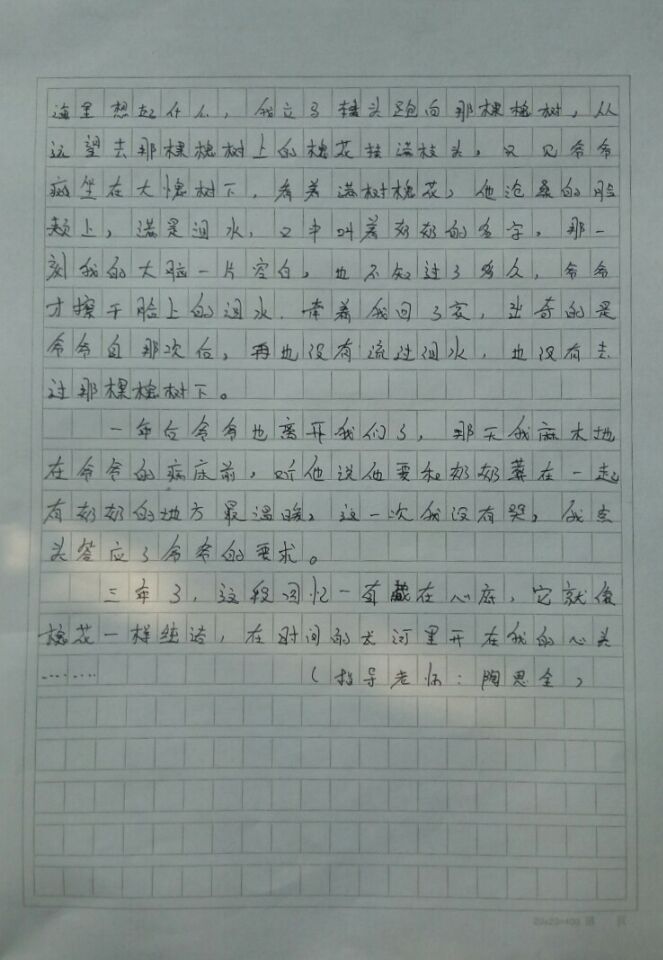 海里想起什么，我立了转头跑向那棵槐树，从
远望去那棵槐树上的槐花挂满枝头，只见爷爷
疯坐在大槐树下，看着满树槐花，他沧桑的脸
颊上，满是泪水，口中叫着奶奶的名字，那一
刻我的大脑一片空白，也不知过了多久，爷爷
才擦干脸上的泪水，牵着我回了家，出奇的是
爷爷自那次后，再也没有流过泪水，也没有去
过那棵槐树下。
一年后爷爷也离开我们了，那天我麻木地
在爷爷的病床前，听他说他要和奶奶葬在一起
有奶奶的地方最温暖，这一次我没有哭，我点
头答应了爷爷的要求。
三年了，这段回忆一直藏在心底，它就像
槐花一样纯洁，在时间的长河里开在我的心头
………
（指导老师：陶思全）
20x20=400 第 页